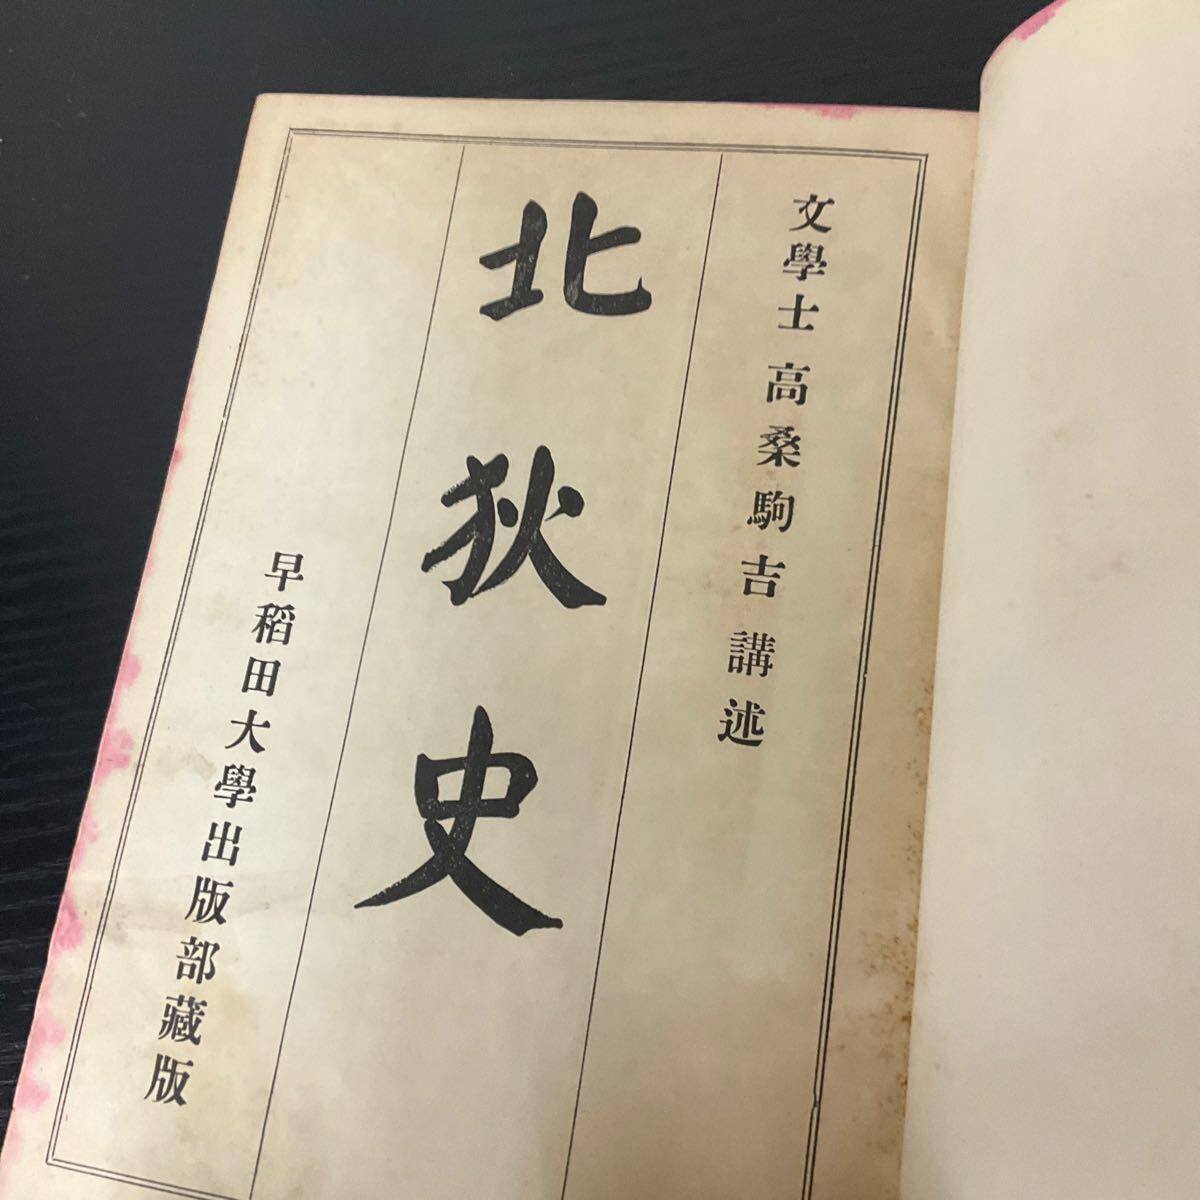 文學士 高桑駒吉 講述
北狄史
早稻田大學出版部藏版